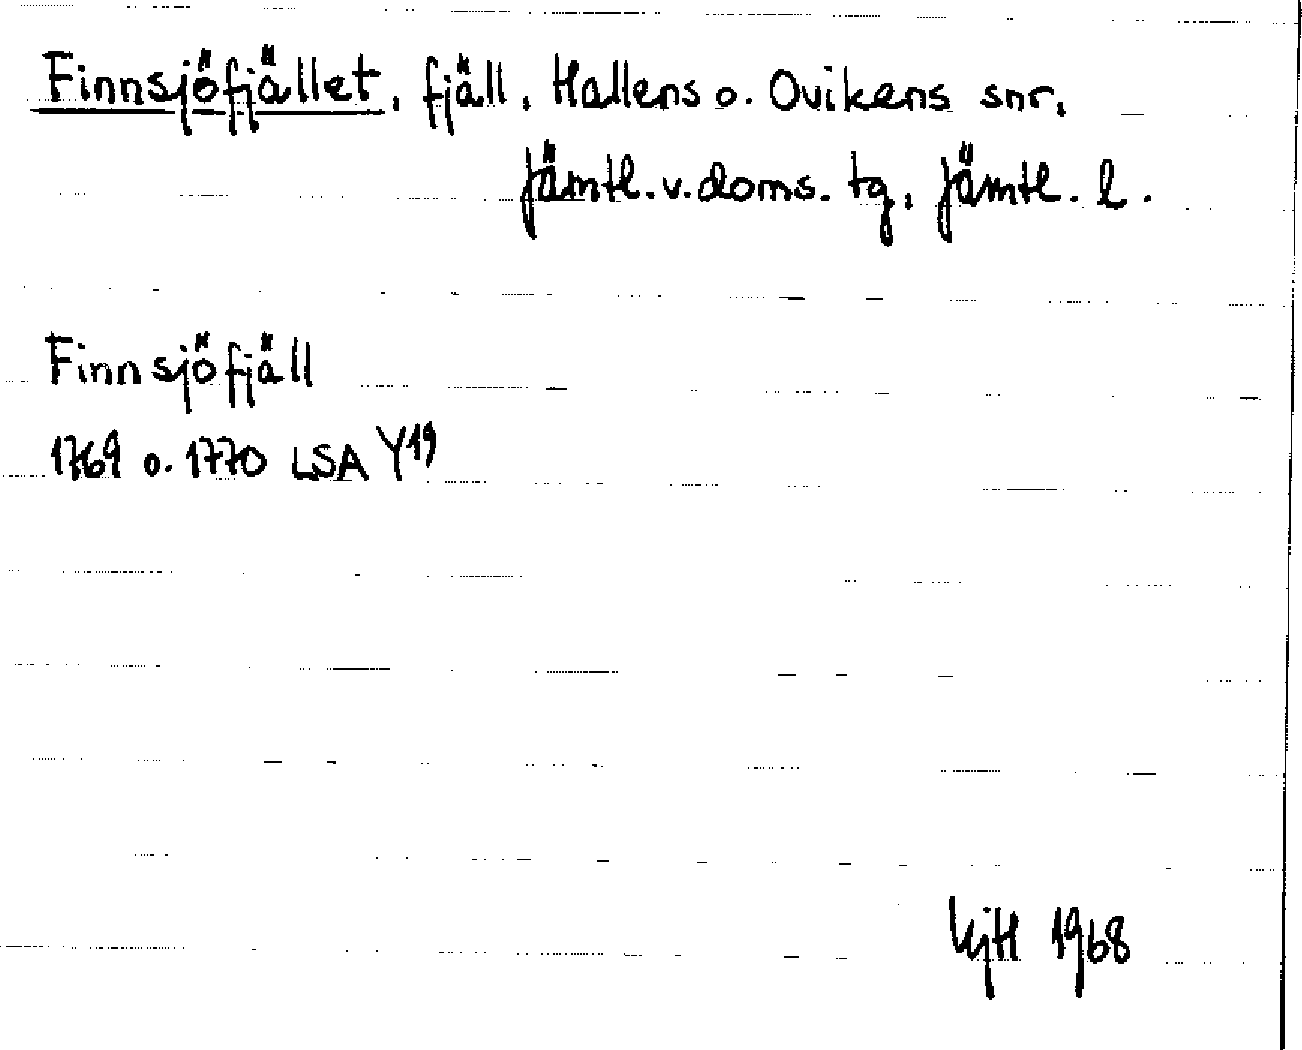 Finnsjöfjället, fjäll, Hallens o. Ovikens snr,
Jämtl. v. doms. tg, Jämtl. l.
Finnsjöfjäll
1769 o. 1770 LSA Y19
1968